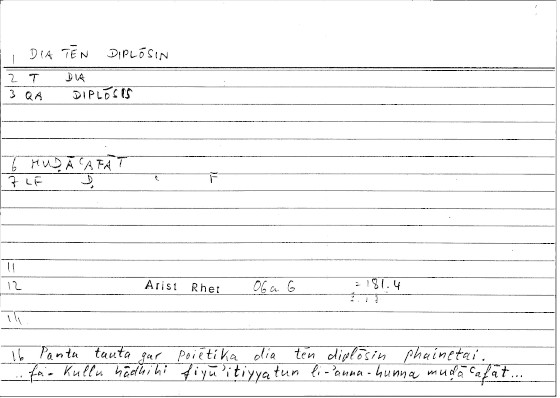 1 DIA TĒN DIPLŌSIN
2 T DIA
3 QA DIPLŌSIS
6 MUḌĀʿAFĀT
7 LF Ḍ ʿ F
11
12 Arist Rhet 06a6 = 181.4
14
16 Panta tauta gar poiētika dia tēn diplōsin phainetai.
.. fa-kullu hādhihi fiyūʾiṭiyyatun li-ʾanna-hunna muḍāʿafāt...